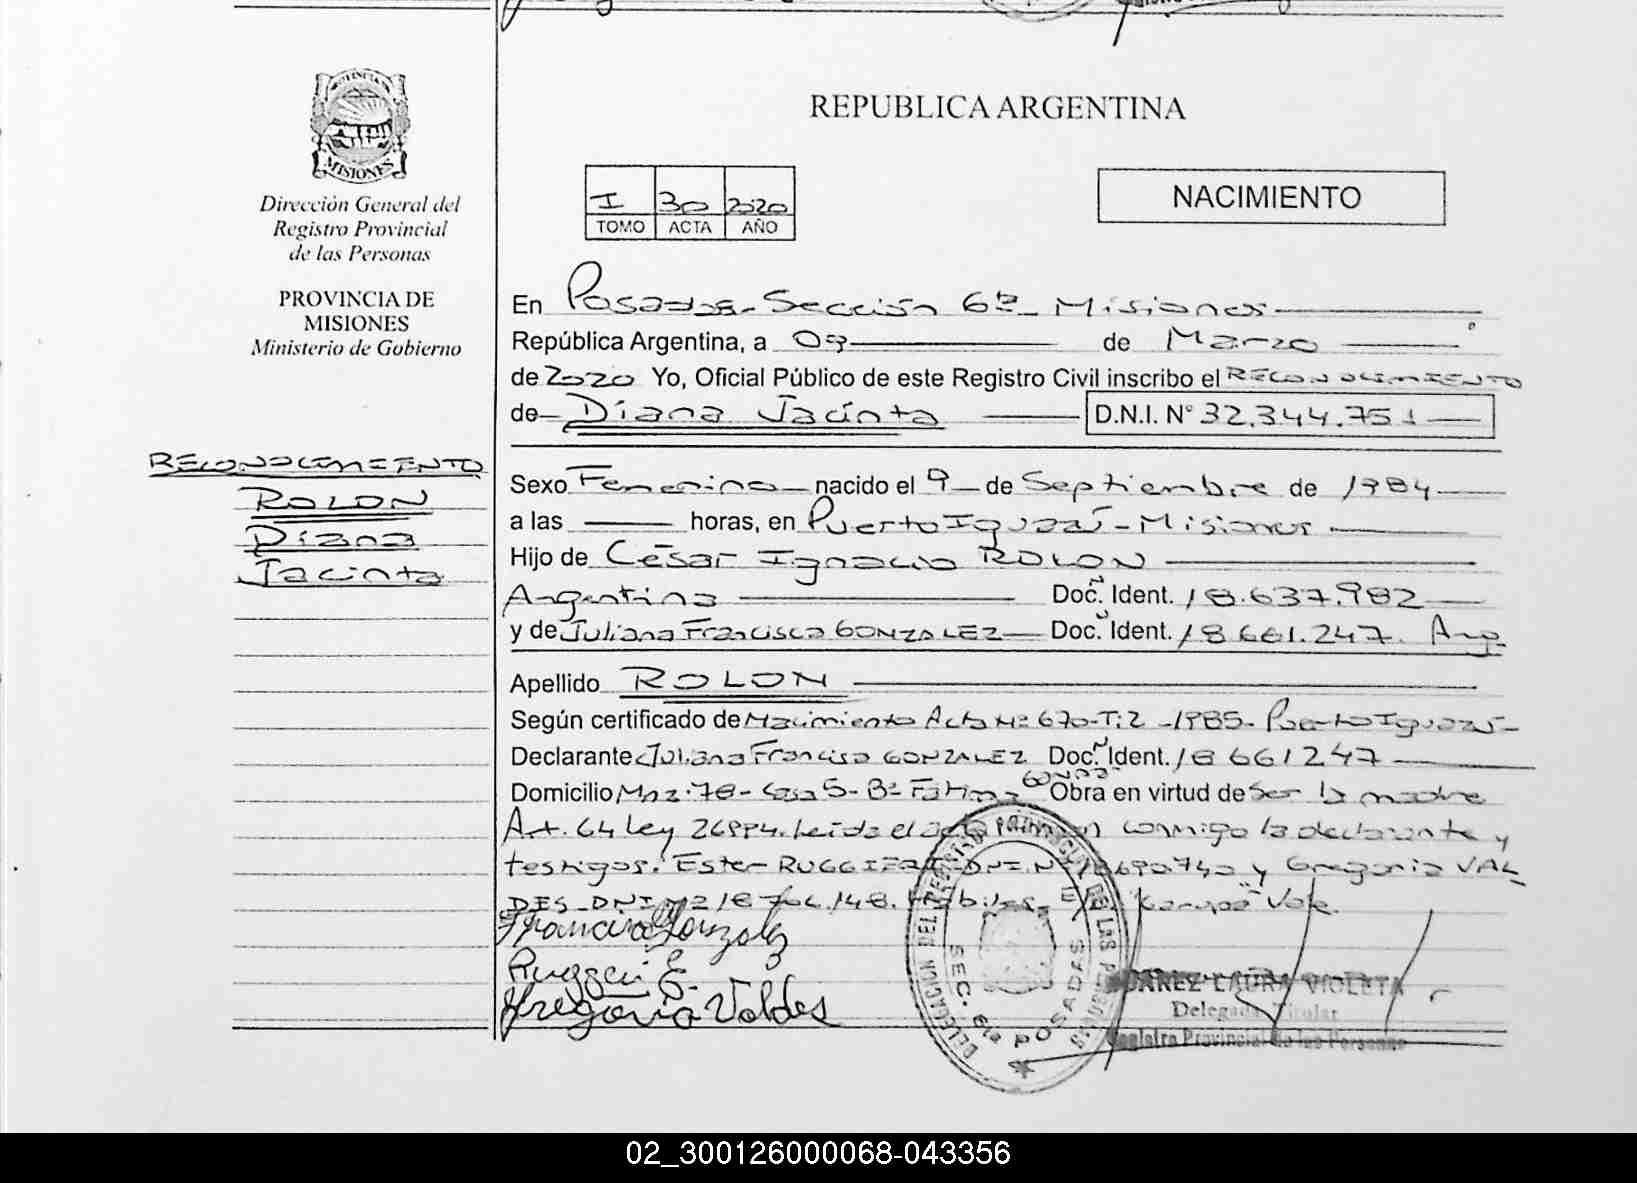 REPUBLICA ARGENTINA
PROVINCIA DE MISIONES
I 30 2020
TOMO ACTA AÑO
NACIMIENTO
Dirección General del
Registro Provincial
de las Personas
PROVINCIA DE
MISIONES
Ministerio de Gobierno
RECONOCIMIENTO
ROLON
Diana
Jacinta
En Posadas - Sección 6ta - Misiones
República Argentina, a 09 de Marzo
de 2020 Yo, Oficial Público de este Registro Civil inscribo el RECONOCIMIENTO
de Diana Jacinta D.N.I. N° 32.344.751
Sexo Femenino nacido el 9 de Septiembre de 1984
a las horas, en Puerto Iguazú - Misiones
Hijo de César Ignacio ROLON
Argentina Doc. Ident. 18.637.982
y de Juliana Francisca GONZALEZ Doc. Ident. 18 661.247. Arg
Apellido ROLON
Según certificado de Nacimiento Acta Nº 670-T:2 - 1985 - Puerto Iguazú -
Declarante Juliana Francisca GONZALEZ Doc. Ident. 18 661247
Domicilio Mnz. 78 - Casa 5 - Bº Fátima - Obra en virtud de ser la madre
Art. 64 Ley 26994. Leída el acta conmigo la declarante y
testigos: Ester RUGGIERI DNI Nº y Gregoria VAL
DES DNI Nº 18 .148. Hábiles. Vale.
Francisca Gonzalez
Ruggeri E.
Gregoria Valdes
DELEGACION DEL REGISTRO PROVINCIAL DE LAS PERSONAS
SEC. 6ta POSADAS
JUAREZ LAURA VIOLETA
Delegada Titular
Registro Provincial de las Personas
02_300126000068-043356